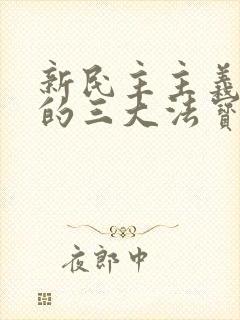 新民主主義
的三大法寶
夜郎中